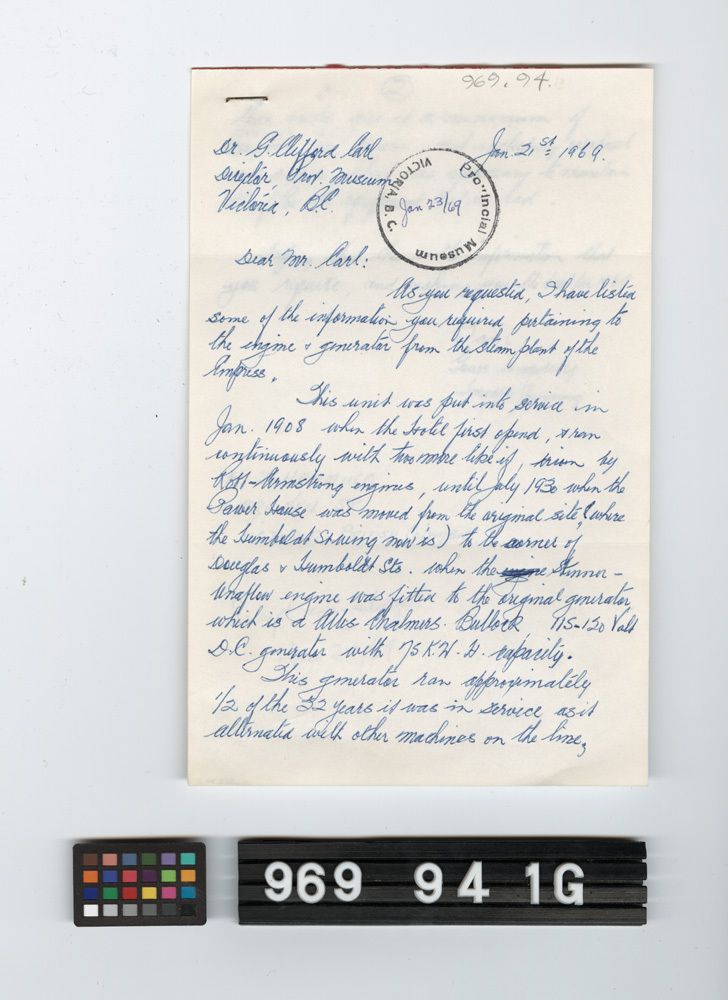 969.94.
Dr. G. Clifford Carl
Jan. 21st 1969.
Director, Prov. Museum
Victoria, B.C.
Provincial Museum
VICTORIA, B.C.
Jan 23/69
Dear Mr. Carl:
As you requested, I have listed
some of the information you required pertaining to
the engine & generator from the steam plant of the
Empress.
This unit was put into service in
Jan. 1908 when the Hotel first opend, & ran
continuously with two more like it, by
Armstrong engines, until July 1930 when the
Power House was moved from the original site, (where
the Humboldt now is) to the corner of
Douglas & Humboldt Sts. when the Skinner-
Unaflow engine was fitted to the original generator,
which is a Allis Chalmers. Bullock 115-120 Volt
D.C. generator with 75 K.W. H. capacity.
This generator ran approximately
1/2 of the 52 years it was in service as it
alternated with other machines on the line,
969 94 1G